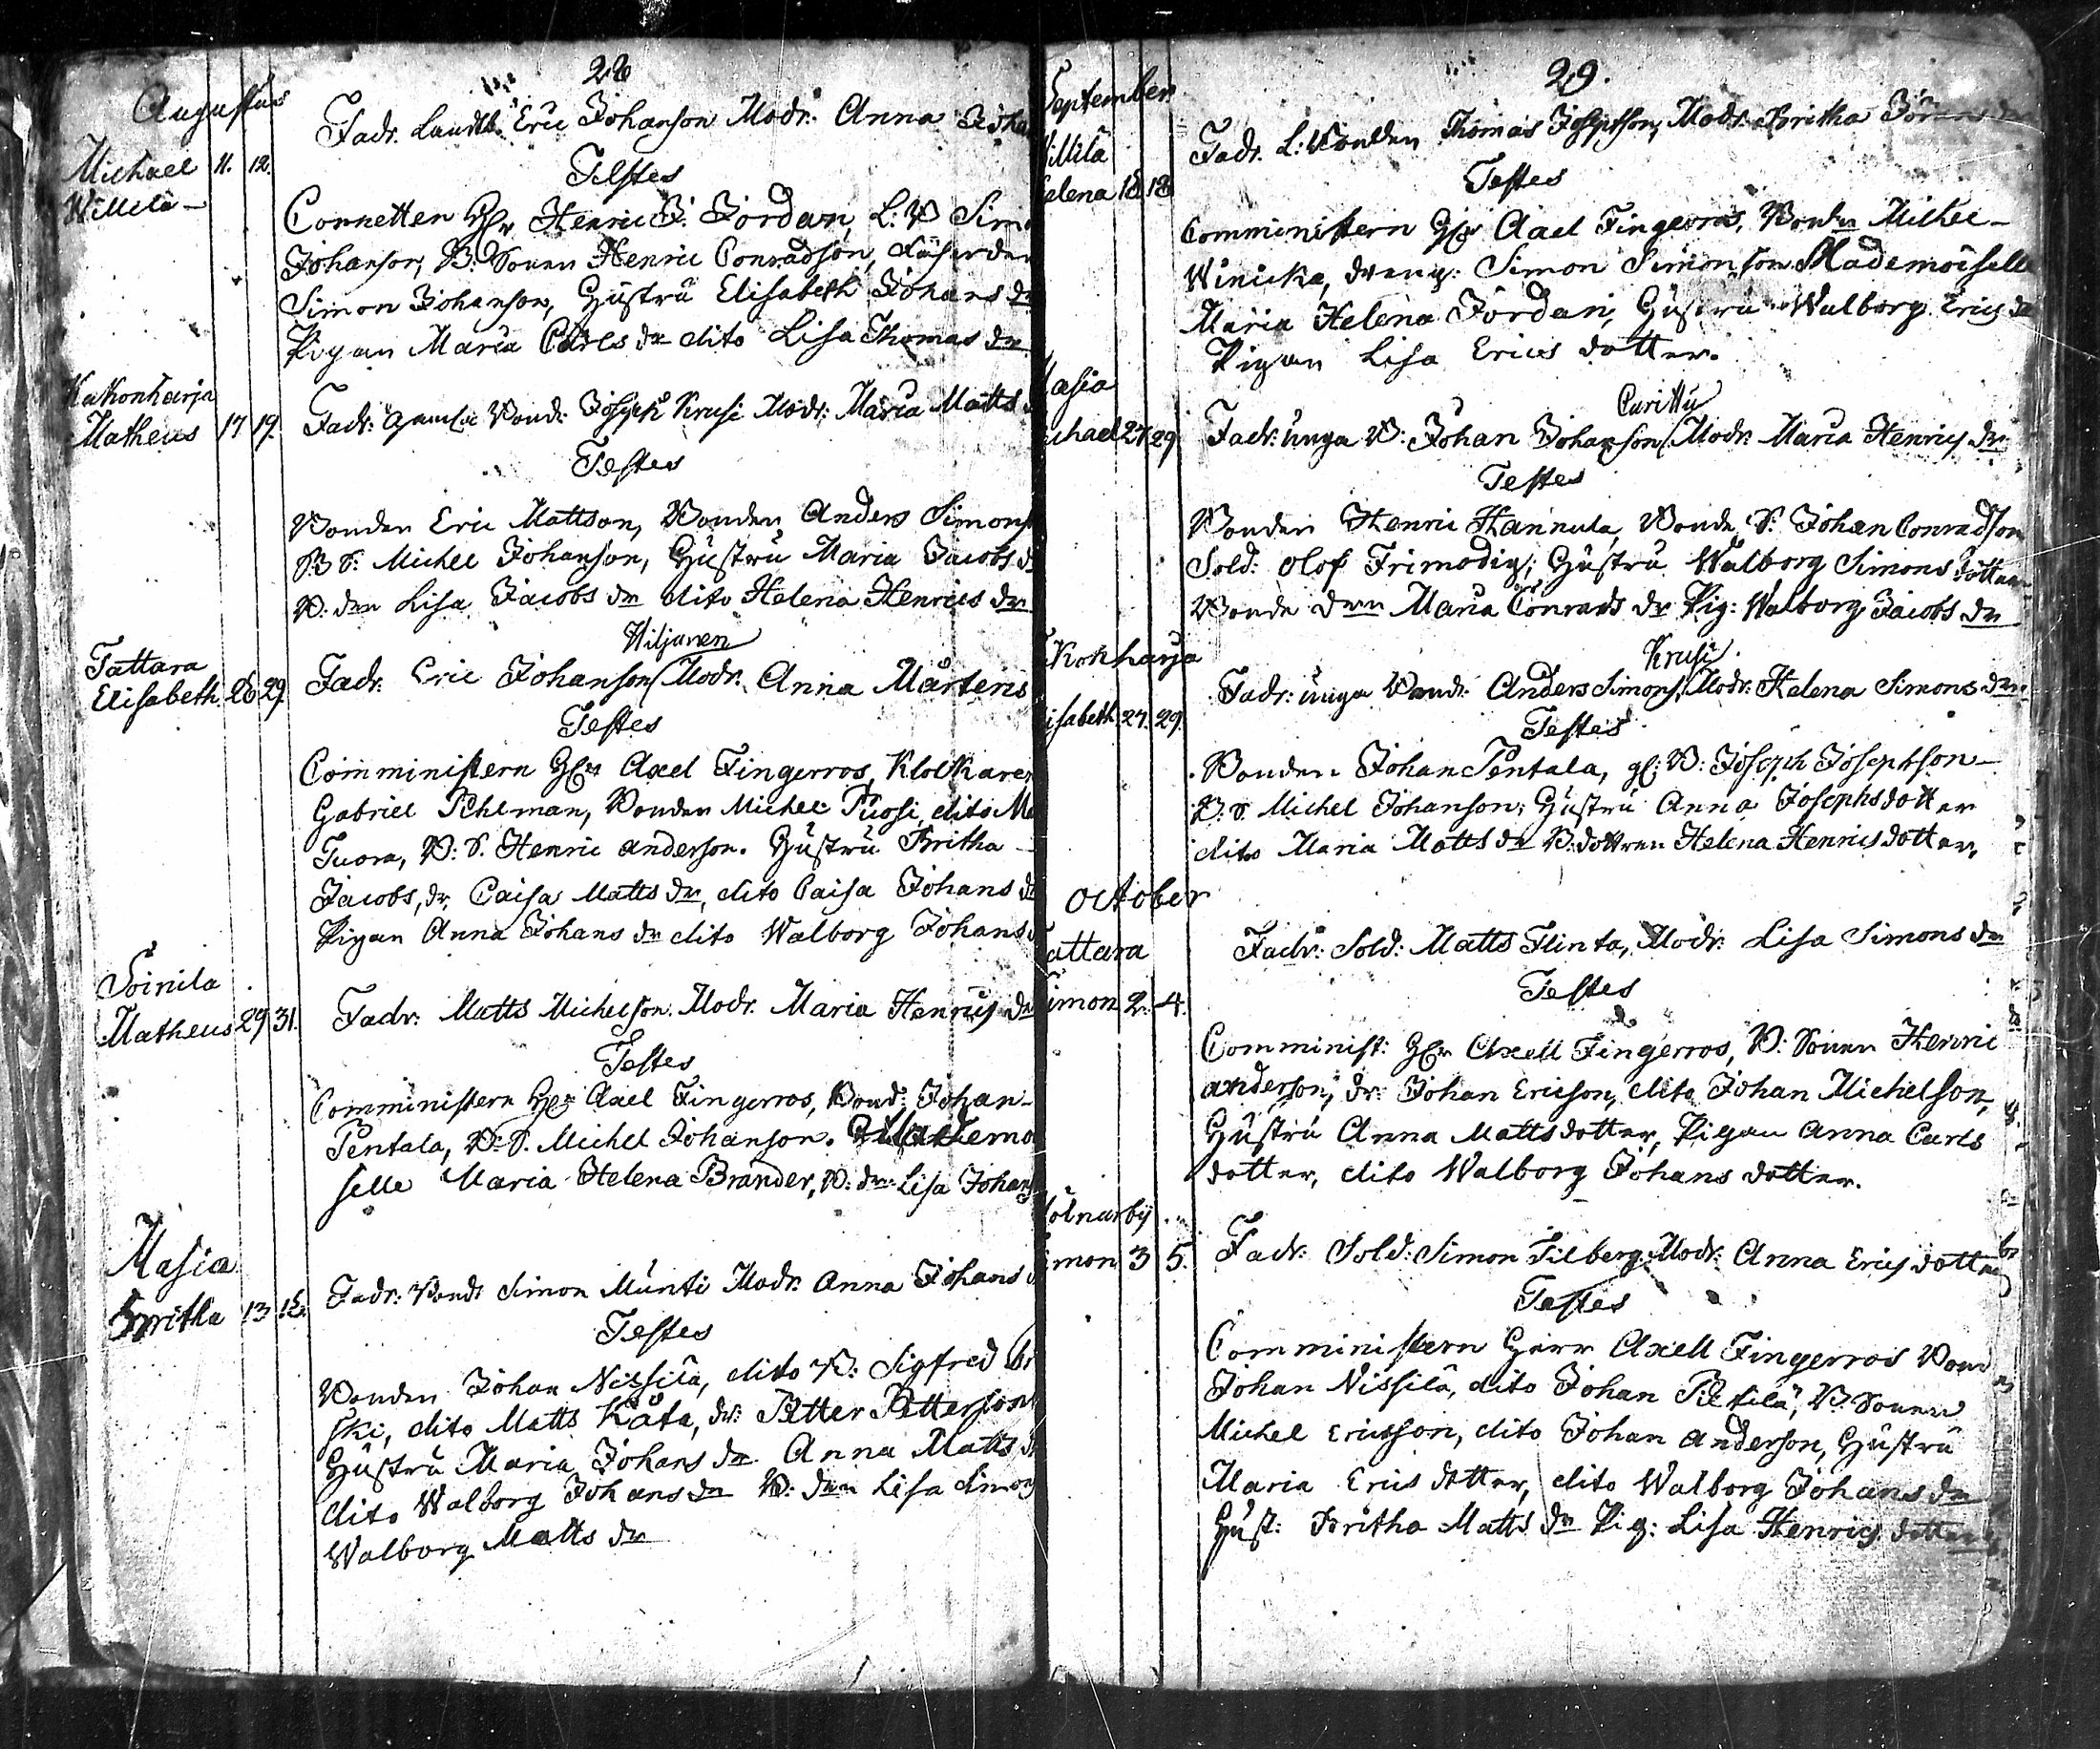 28
Augustus
Fadr. Landtb. Eric Johanson Modr: Anna Joha
Michael 11. 12.
Willilä
Testes
Cornetten Hr Henric J: Jördan, L: B Sim
Johanson, B: Sonen Henric Conradson,
Simon Johanson, Hustru Elisabeth Johans dr
Pigan Maria Carls dr dito Lisa Thomas dr
Kakonharja
Matheus 17 19. Fadr: gamla Bond: Joseph Krusi Modr: Maria Matts
Testes
Bonden Eric Mattson, Bonden Anders Simons
B S: Michel Johanson, Hustru Maria Jacobs d
B: drn Lisa Jacobs dr dito Helena Henrics dr
Hiljanen
Tattara
Elisabeth 26 29. Fadr. Eric Johanson/ Modr. Anna Mårtens
Testes
Comministern Hr Axel Fingerroos, Klockaren
Gabriel Pehlman, Bonden Michel Puosi, dito Ma
Tuora, B: S. Henric anderson. Hustru Britha
Jacobs, dr, Caisa Matts dr, dito Caisa Johans d
Pigan Anna Johans dr dito Walborg Johans
Soinila
Matheus 29 31. Fadr: Matts Michelson. Modr. Maria Henrics dr
Testes
Comministern Hr Axel Fingerros, Bond: Johan
Pentala, B: S. Michel Johanson. Mademo
selle Maria Helena Brander, B: dr: Lisa Johans
Masia
Britha 13 15. Fadr: Bond: Simon Munti Modr: Anna Johans
Testes
Bonden Johan Nissilä, dito B: Sigfred
ski, dito Matts Kåta, dr: Petter Petterson
Hustru Maria Johans dr Anna Matts d
dito Walborg Johans dr B: drn Lisa Simons
Walborg Matts dr
29.
September
Fadr. L: Bonden Thomas Josephson, Modr. Britha
Willilä
elena 18 18
Testes
Comministern Hr Axel Fingerros, Bonden Michel
Winicka, dreng: Simon Simonson Mademoiselle
Maria Helena Jördan, Hustru Walborg Erics dr
Pigan Lisa Erics dotter.
Masia
Carittu
ichael 27 29 Fadr: unga B: Johan Johanson/ Modr: Maria Henrics dr
Testes
Bonden Henric Hannula, Bonde S: Johan Conradson
Sold: Olof Frimodig, Hustru Walborg Simons dotter
Bonde drn Maria Conrads dr Pig: Walborg Jacobs dr
Kokharja
Krusi.
isabeth 27. 29. Fadr: unga Bond: Anders Simons/ Modr: Helena Simons dr
Testes
Bonden Johan Pentala, gl: B: Joseph Josephson
B: S. Michel Johanson, Hustru Anna Josephs dotter
dito Maria Matts dr B: dottren Helena Henrics dotter,
October
attara
Fadr: Sold: Matts Flinta, Modr: Lisa Simons dr
imon 2. 4.
Testes
Comminist: Hr Axell Fingerros, B: Sonen Henric
anderson, dr: Johan Ericson, dito Johan Michelson,
Hustru Anna Matts dotter, Pigan Anna Carls
dotter, dito Walborg Johans dotter.
olnarby
imon 3 5. Fadr: Sold: Simon Silberg. Modr: Anna Erics dotter
Testes
Comministern Herr Axell Fingerros Bond
Johan Nissilä, dito Johan Pietilä, B: Sonen
Michel Ericsson, dito Johan Anderson, Hustru
Maria Erics dotter, dito Walborg Johans dr
Hust: Britha Matts dr Pig: Lisa Henrics dotter